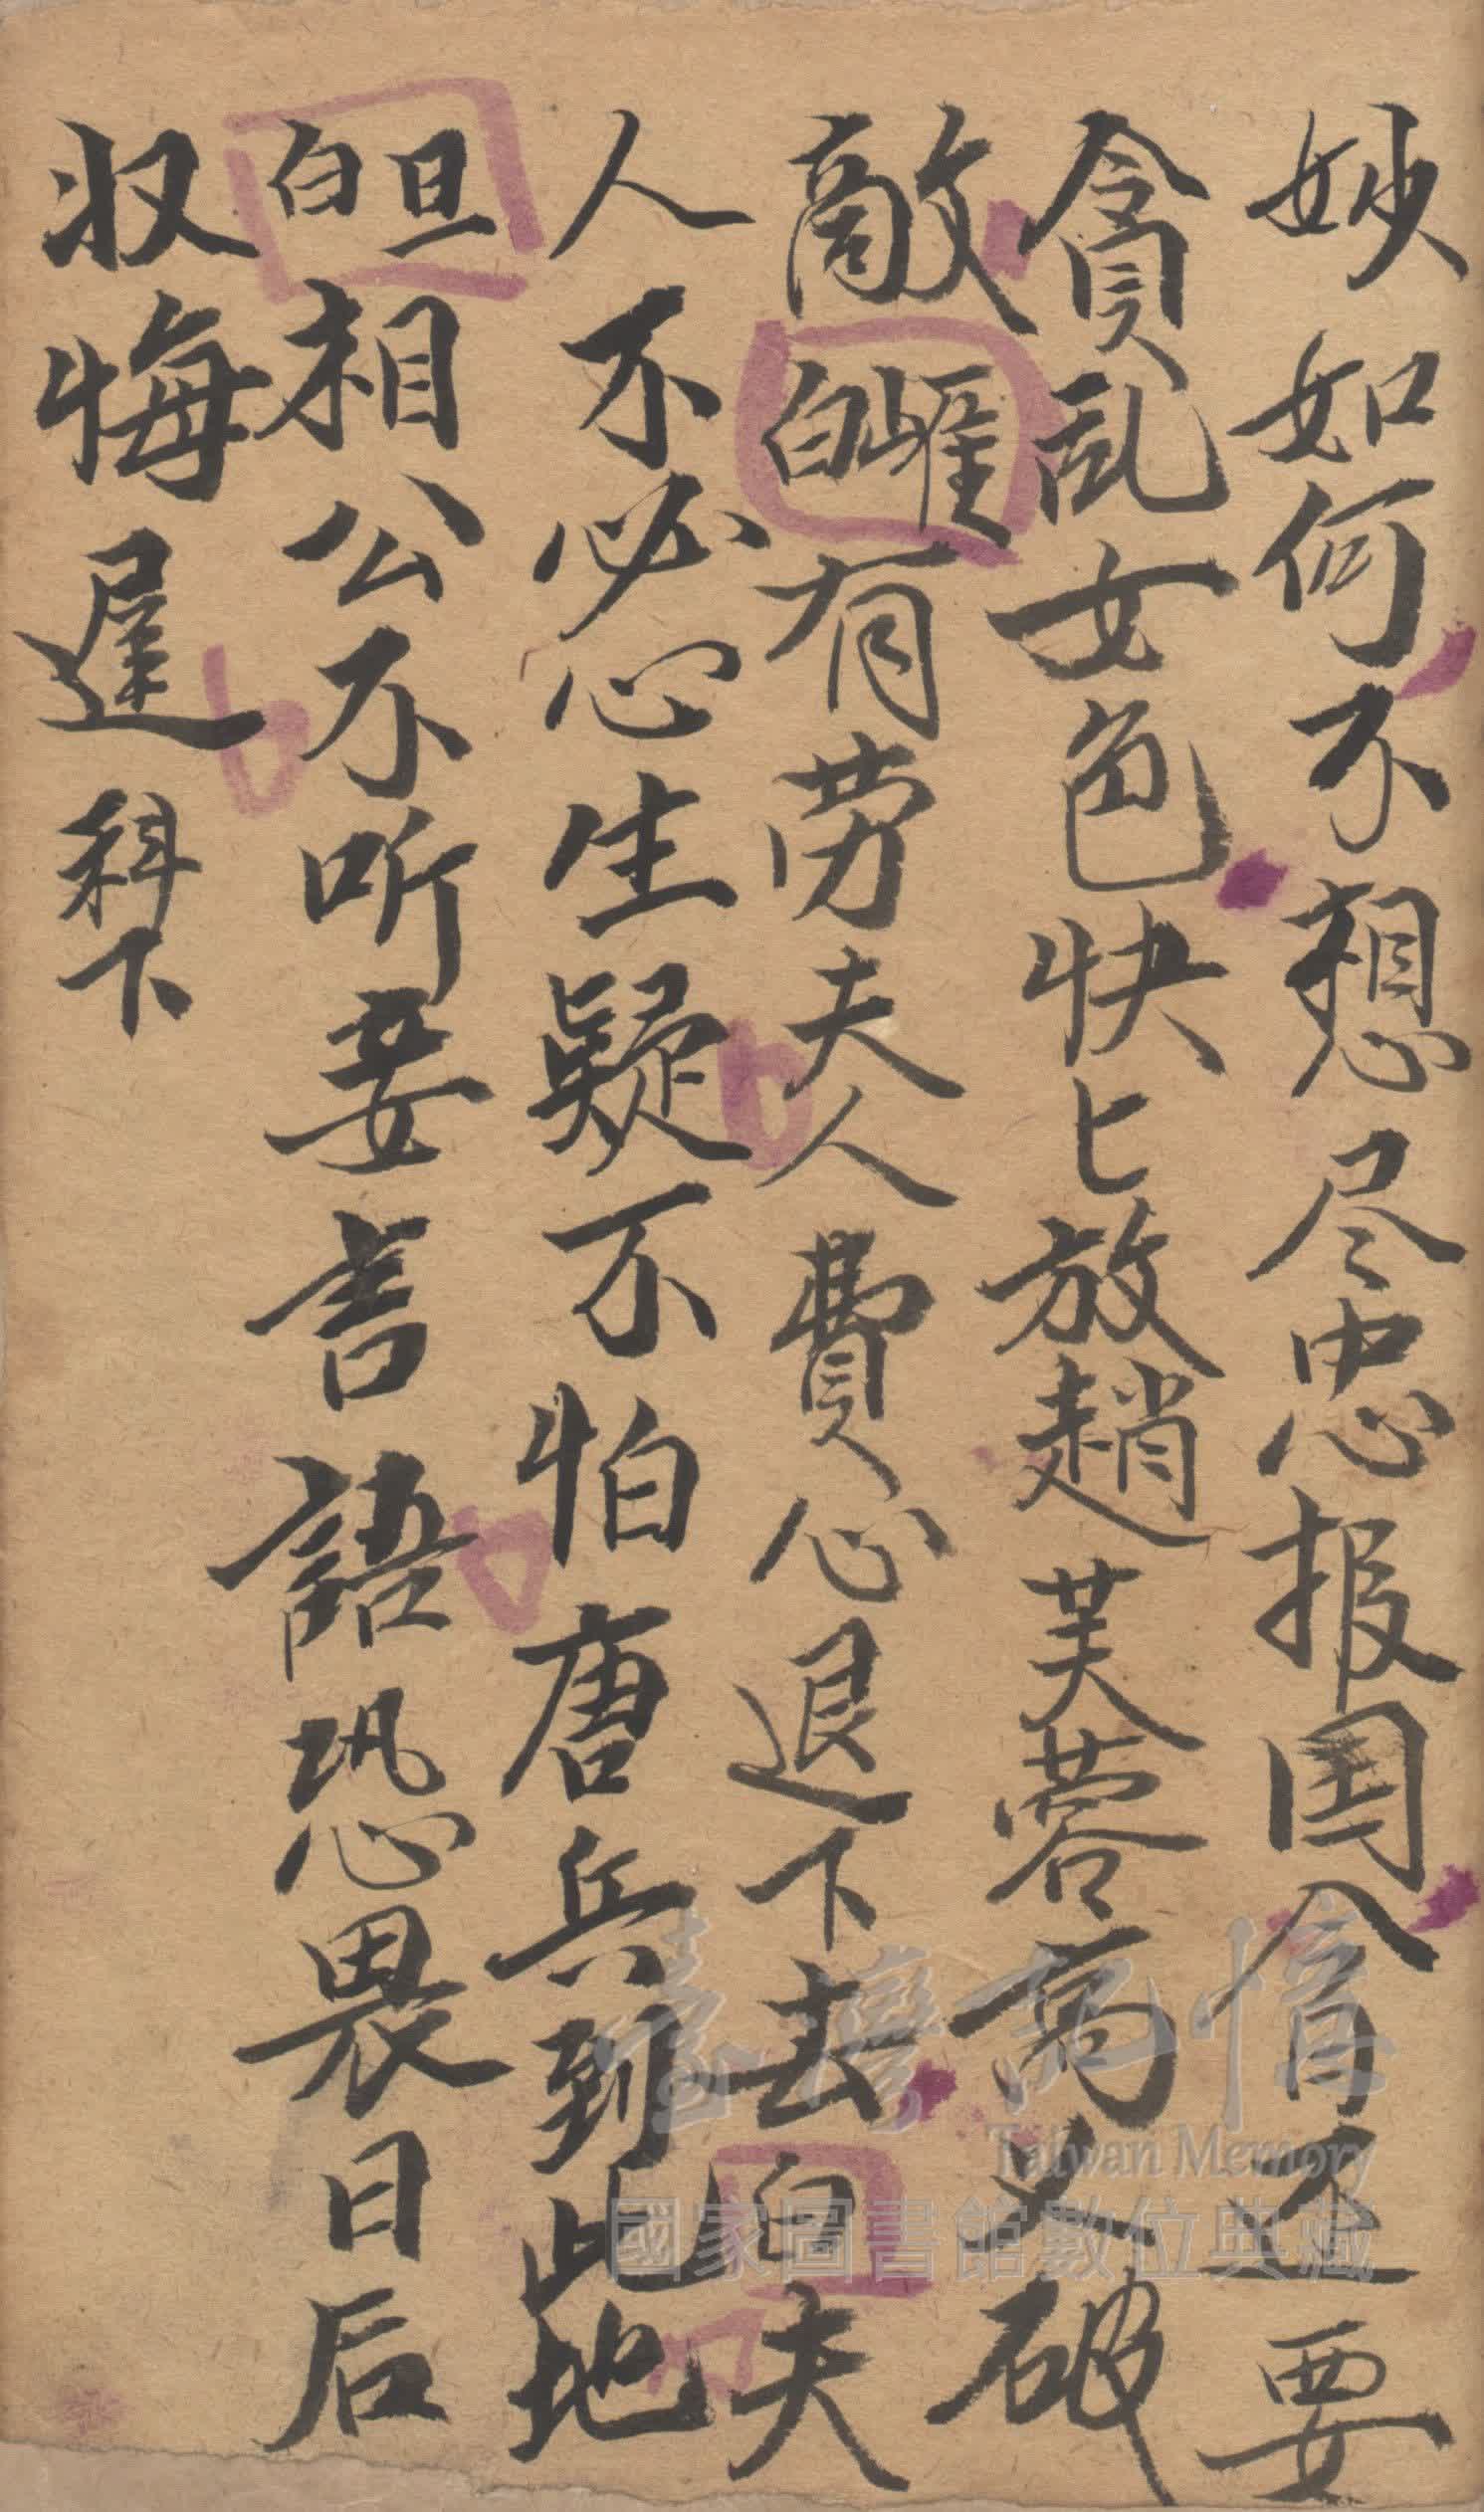 妙如何不想尽忠报国今宵还要
貪乱女色快匕放趙芙蓉萬父破
敵 白 有劳夫人費心退下去 白 夫
人不必心生疑不怕唐兵到此地
旦白 相公不听妾言語恐畏日后
収悔遅 科下
臺灣記憶
Taiwan Memory
國家圖書館數位典藏